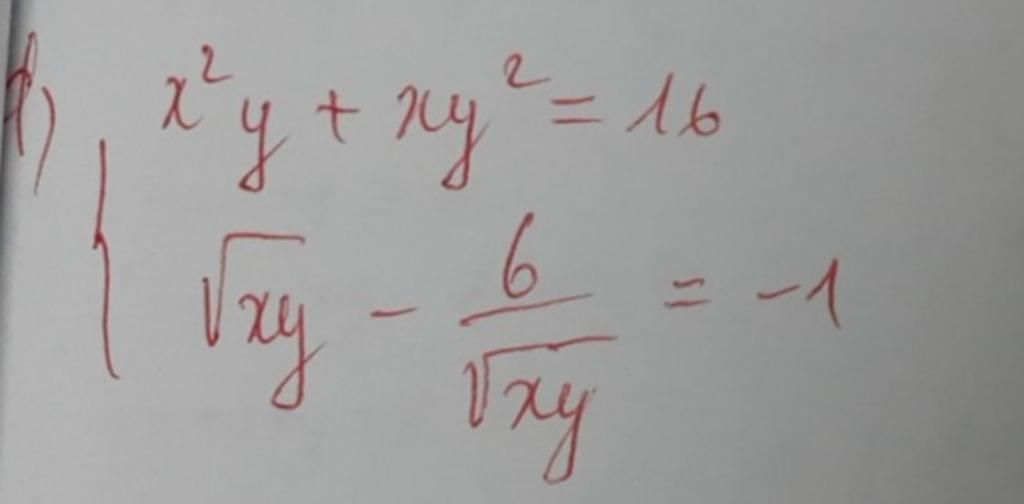 f) x²y + xy² = 16
{ √xy - 6/√xy = -1